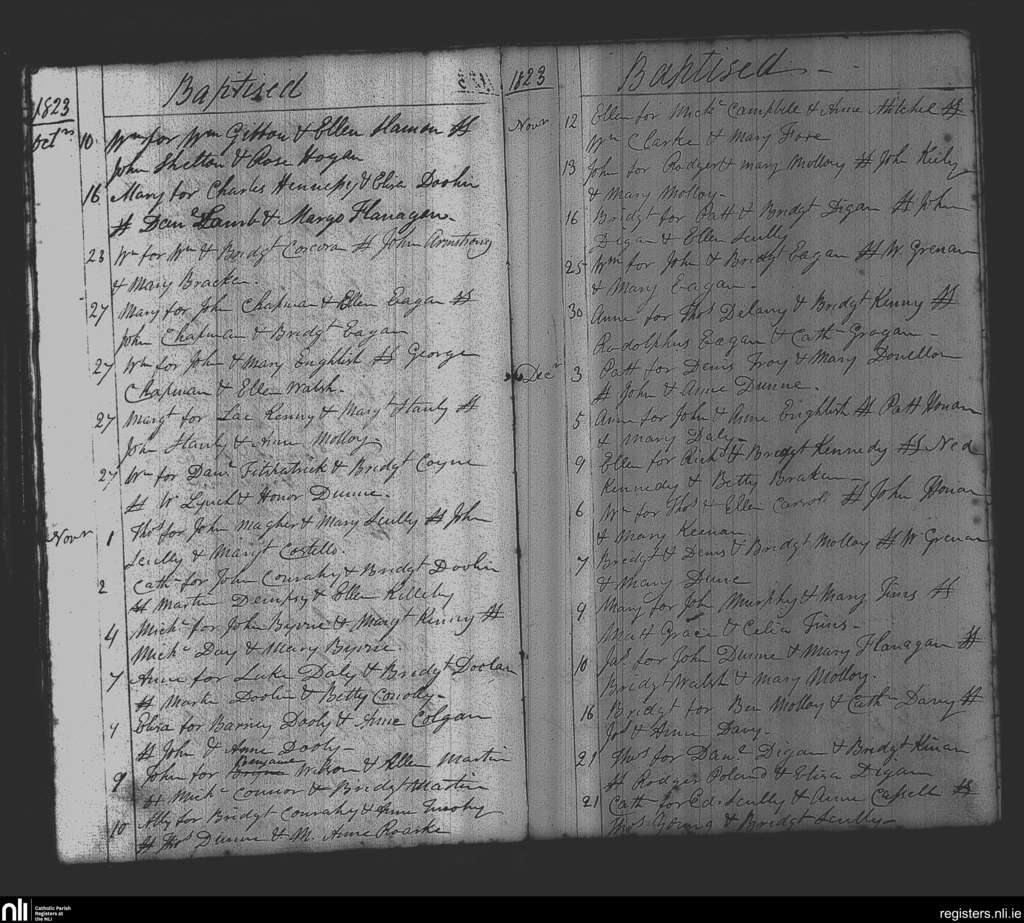 1823
Baptised
Octr 10 Wm for Wm Gitton & Ellen Hamon #
John Shelten & Rose Hogan
16 Mary for Charles Hennesy & Eliza Doolin
# Danl Lamb & Margs Flanagen.
23 Wm for Wm & Bridgt Corcoran # John Armstrong
& Mary Bracken.
27 Mary for John Chapman & Ellen Eagan #
John Chapman & Bridgt Eagan
27 Wm for John & Mary Enghlish # George
Chapman & Ellen Walsh.
27 Margt for Lac Kenny & Margt Hanly #
John Hanly & Anne Molloy
27 Wm for Danl Fitzpatrick & Bridgt Coyne
# Wm Lynch & Honor Dunne.
Novr 1 Thos for John Magher & Mary Scully # John
Scully & Margt Costello.
2 Cath for John Conrahy & Bridgt Doolin
# Martin Dempsy & Ellen Killeby
4 Michl for John Byrne & Margt Kenny #
Michl Day & Mary Byrne.
7 Anne for Luke Daly & Bridgt Doolan
# Martin Doolin & Betty Conolly
7 Eliza for Barney Dooly & Anne Colgan
# John & Anne Dooly
9 John for Benjamin Wilson & Ellen Martin
# Michl Connor & Bridgt Martin
10 for Bridgt Conrahy & Anne
# Thos Dunne & M. Anne Roarke
1823
Baptised
Novr 12 Ellen for Michl Campbell & Anne Mitchel #
Wm Clarke & Mary Fore
13 John for Rodger & Mary Molloy # John Kiely
& Mary Molloy
16 Bridgt for Patt & Bridgt Digan # John
Digan & Ellen Scully
25 Wm for John & Bridgt Eagan # W. Grenan
& Mary Eagan
30 Anne for Thos Delany & Bridgt Kenny #
Rudolphus Eagan & Cath Grogan
Decr 3 Patt for Denis Troy & Mary Donellon
# John & Anne Dunne.
5 Anne for John & Anne Enghlish # Patt Honan
& Mary Daly
9 Ellen for Richd & Bridgt Kennedy # Ned
Kennedy & Betty Braken
6 Wm for Thos & Ellen Carroll # John Honan
& Mary Keenan
7 Bridgt & Denis & Bridgt Molloy # W Grenan
& Mary Dune
9 Mary for John Murphy & Mary Tims #
Matt Grace & Celia Tims
10 Jas for John Dunne & Mary Flanagan #
Bridgt Walsh & Mary Molloy.
16 Bridgt for Ben Molloy & Cath Davy #
Jos & Anne Davy
21 Thos for Danl Digan & Bridgt Kinan
# Rodger Poland & Eliza Digan
21 Cath for Ed. Scully & Anne Cassell #
Thos Young & Bridgt Scully
nli
Catholic Parish
Registers at
the NLI
registers.nli.ie